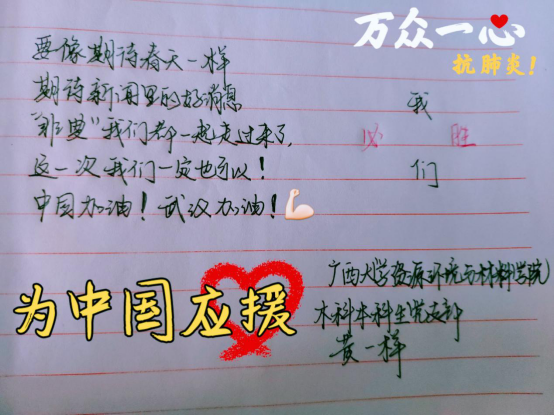 万众一心
抗肺炎!
要像期待春天一样
期待新闻里的好消息
"非典"我们都一起走过来了,
这一次我们一定也可以!
中国加油!武汉加油!
我
必 胜
们
为中国应援
广西大学资源环境与材料学院
木科本科生党支部
黄一样